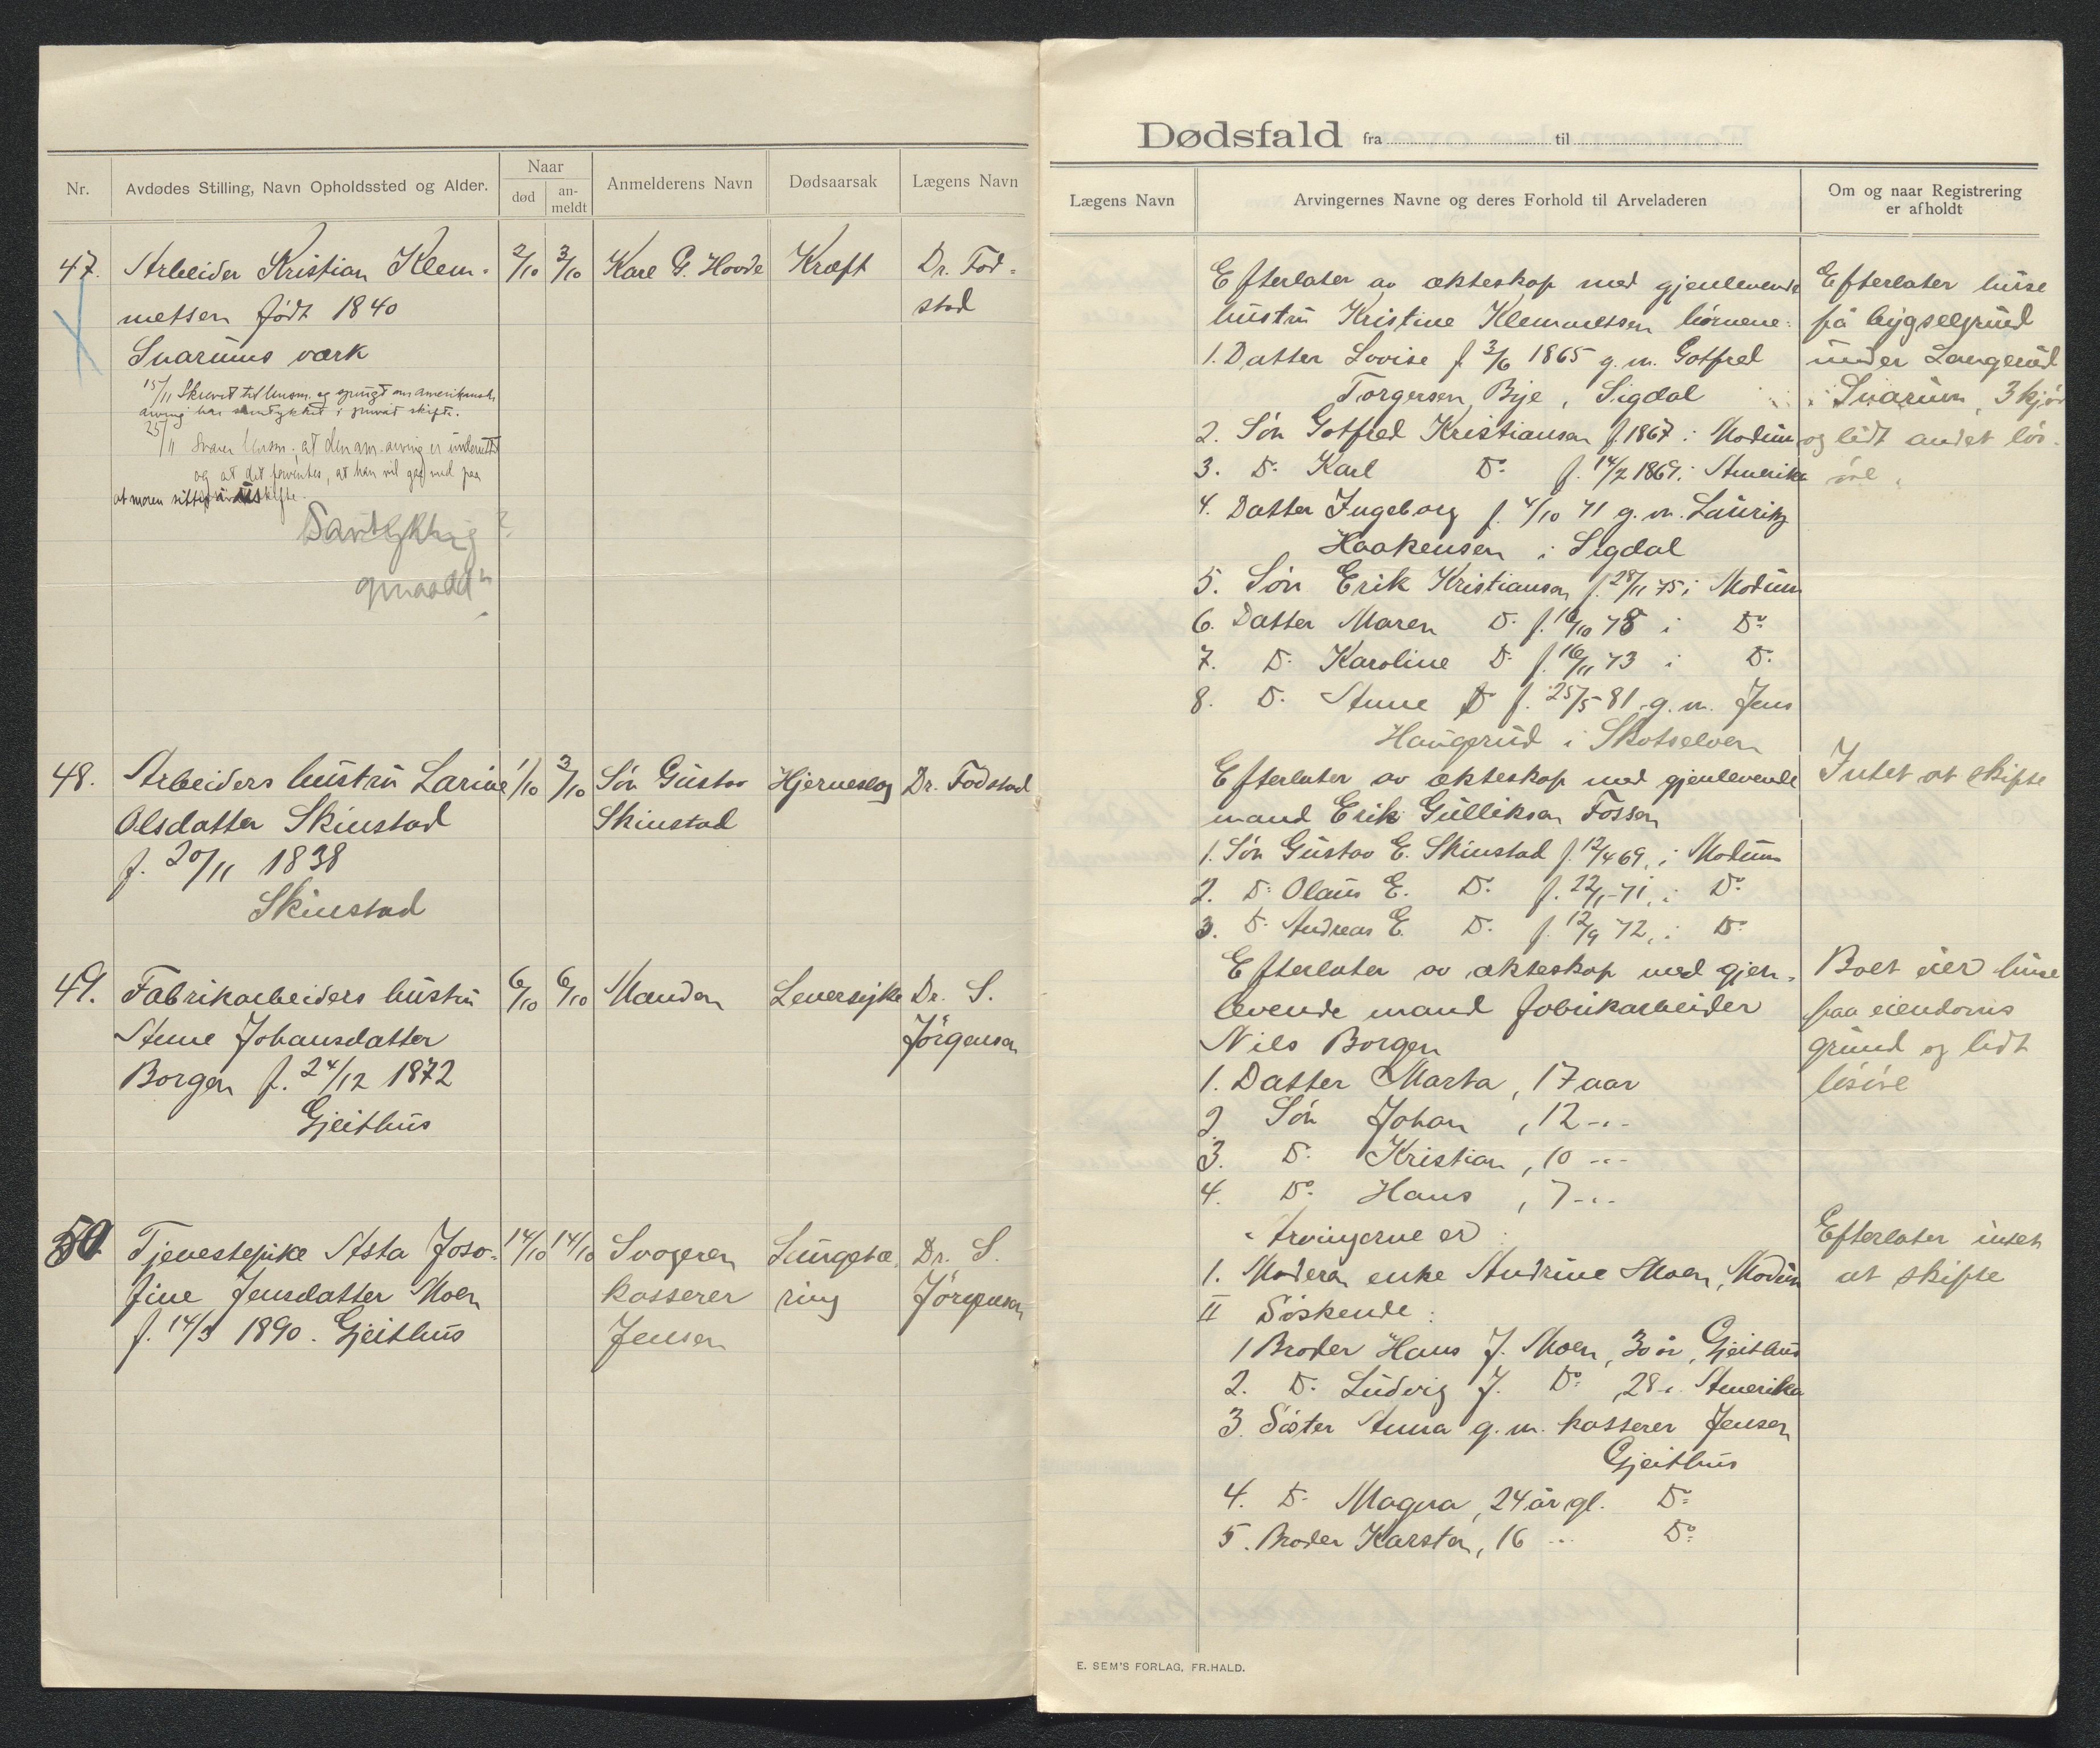 Nr.
Avdødes Stilling, Navn Opholdssted og Alder.
Naar
død
an-
meldt
Anmelderens Navn
Dødsaarsak
Lægens Navn
47. Arbeider Kristian Klem- 2/10 3/10 Karl G. Hovde Kræft Dr. Fod-
metsen født 1840 stad
Snarums værk
15/11 Skrevet til lensm. og spurgt om amerikanske
arving har samtykket i privat skifte.
25/11 Svarer lensm., at den am. arving er underrettet
og at det forventes, at han vil gaa ind paa
at moren sitter i uskifte.
48. Arbeiders hustru Larine 1/10 3/10 Søn Gustav Hjerneslag Dr. Fodstad
Olsdatter Skinstad Skinstad
f. 20/11 1838
Skinstad
49. Fabrikarbeiders hustru 6/10 6/10 Manden Leversyke Dr. S.
Anne Johansdatter Jörgensen
Borgen f. 24/12 1872
Gjeithus
50 Tjenestepike Asta Jose- 14/10 14/10 Svogeren Lungetæ- Dr. S.
fine Jensdatter Moen kasserer ring Jörgensen
f. 14/3 1890. Gjeithus Jensen
Dødsfald fra til
Lægens Navn
Arvingernes Navne og deres Forhold til Arveladeren
Om og naar Registrering
er afholdt
Efterlater av ekteskap med gjenlevende Efterlater huse
hustru Kristine Klemmetsen börnene: på bygselgrund
1. Datter Lovise f 3/6 1865 g. m. Gotfred under Langerud
Torgersen Bye, Sigdal i Snarum, 3 kjör
2. Sön Gotfred Kristiansen f. 1867 i Modum og lidt andet lös-
3. Do Karl Do f. 14/2 1869 i Amerika öre.
4. Datter Ingeborg f. 4/10 71 g. m. Lauritz
Haakensen i Sigdal
5. Sön Erik Kristiansen f. 28/11 75 i Modum
6. Datter Maren Do f. 10/10 78 i Do
7. Do Karoline Do f. 16/11 73 i Do
8. Do Anne Do f. 25/5 81 g. m. Jens
Haugerud i Skotselven
Efterlater av ekteskap med gjenlevende Intet at skifte
mand Erik Gulliksen Fossen
1. Sön Gustav E. Skinstad f. 12/4 69, i Modum
2. Do Olaus E. Do f. 22/1 71, i Do
3. Do Andreas E. Do f. 12/9 72, i Do
Efterlater av ekteskap med gjen- Boet eier huse
levende mand fabrikarbeider paa eiendoms
Nils Borgen grund og lidt
1. Datter Marta, 17 aar lösöre
2. Sön Johan, 12 -"-
3. Do Kristian, 10 -"-
4. Do Hans, 7 -"-
Arvingerne er: Efterlater intet
1. Moderen enke Andrine Moen, Modum at skifte
II Söskende:
1 Broder Hans J. Moen, 30 år, Gjeithus
2. Do Ludvig J. Do, 28 i Amerika
3. Söster Anna g. m. kasserer Jensen
Gjeithus
4. Do Magna, 24 år gl. Do
5. Broder Karsten, 16 -"- Do
E. SEM'S FORLAG, FR.HALD.